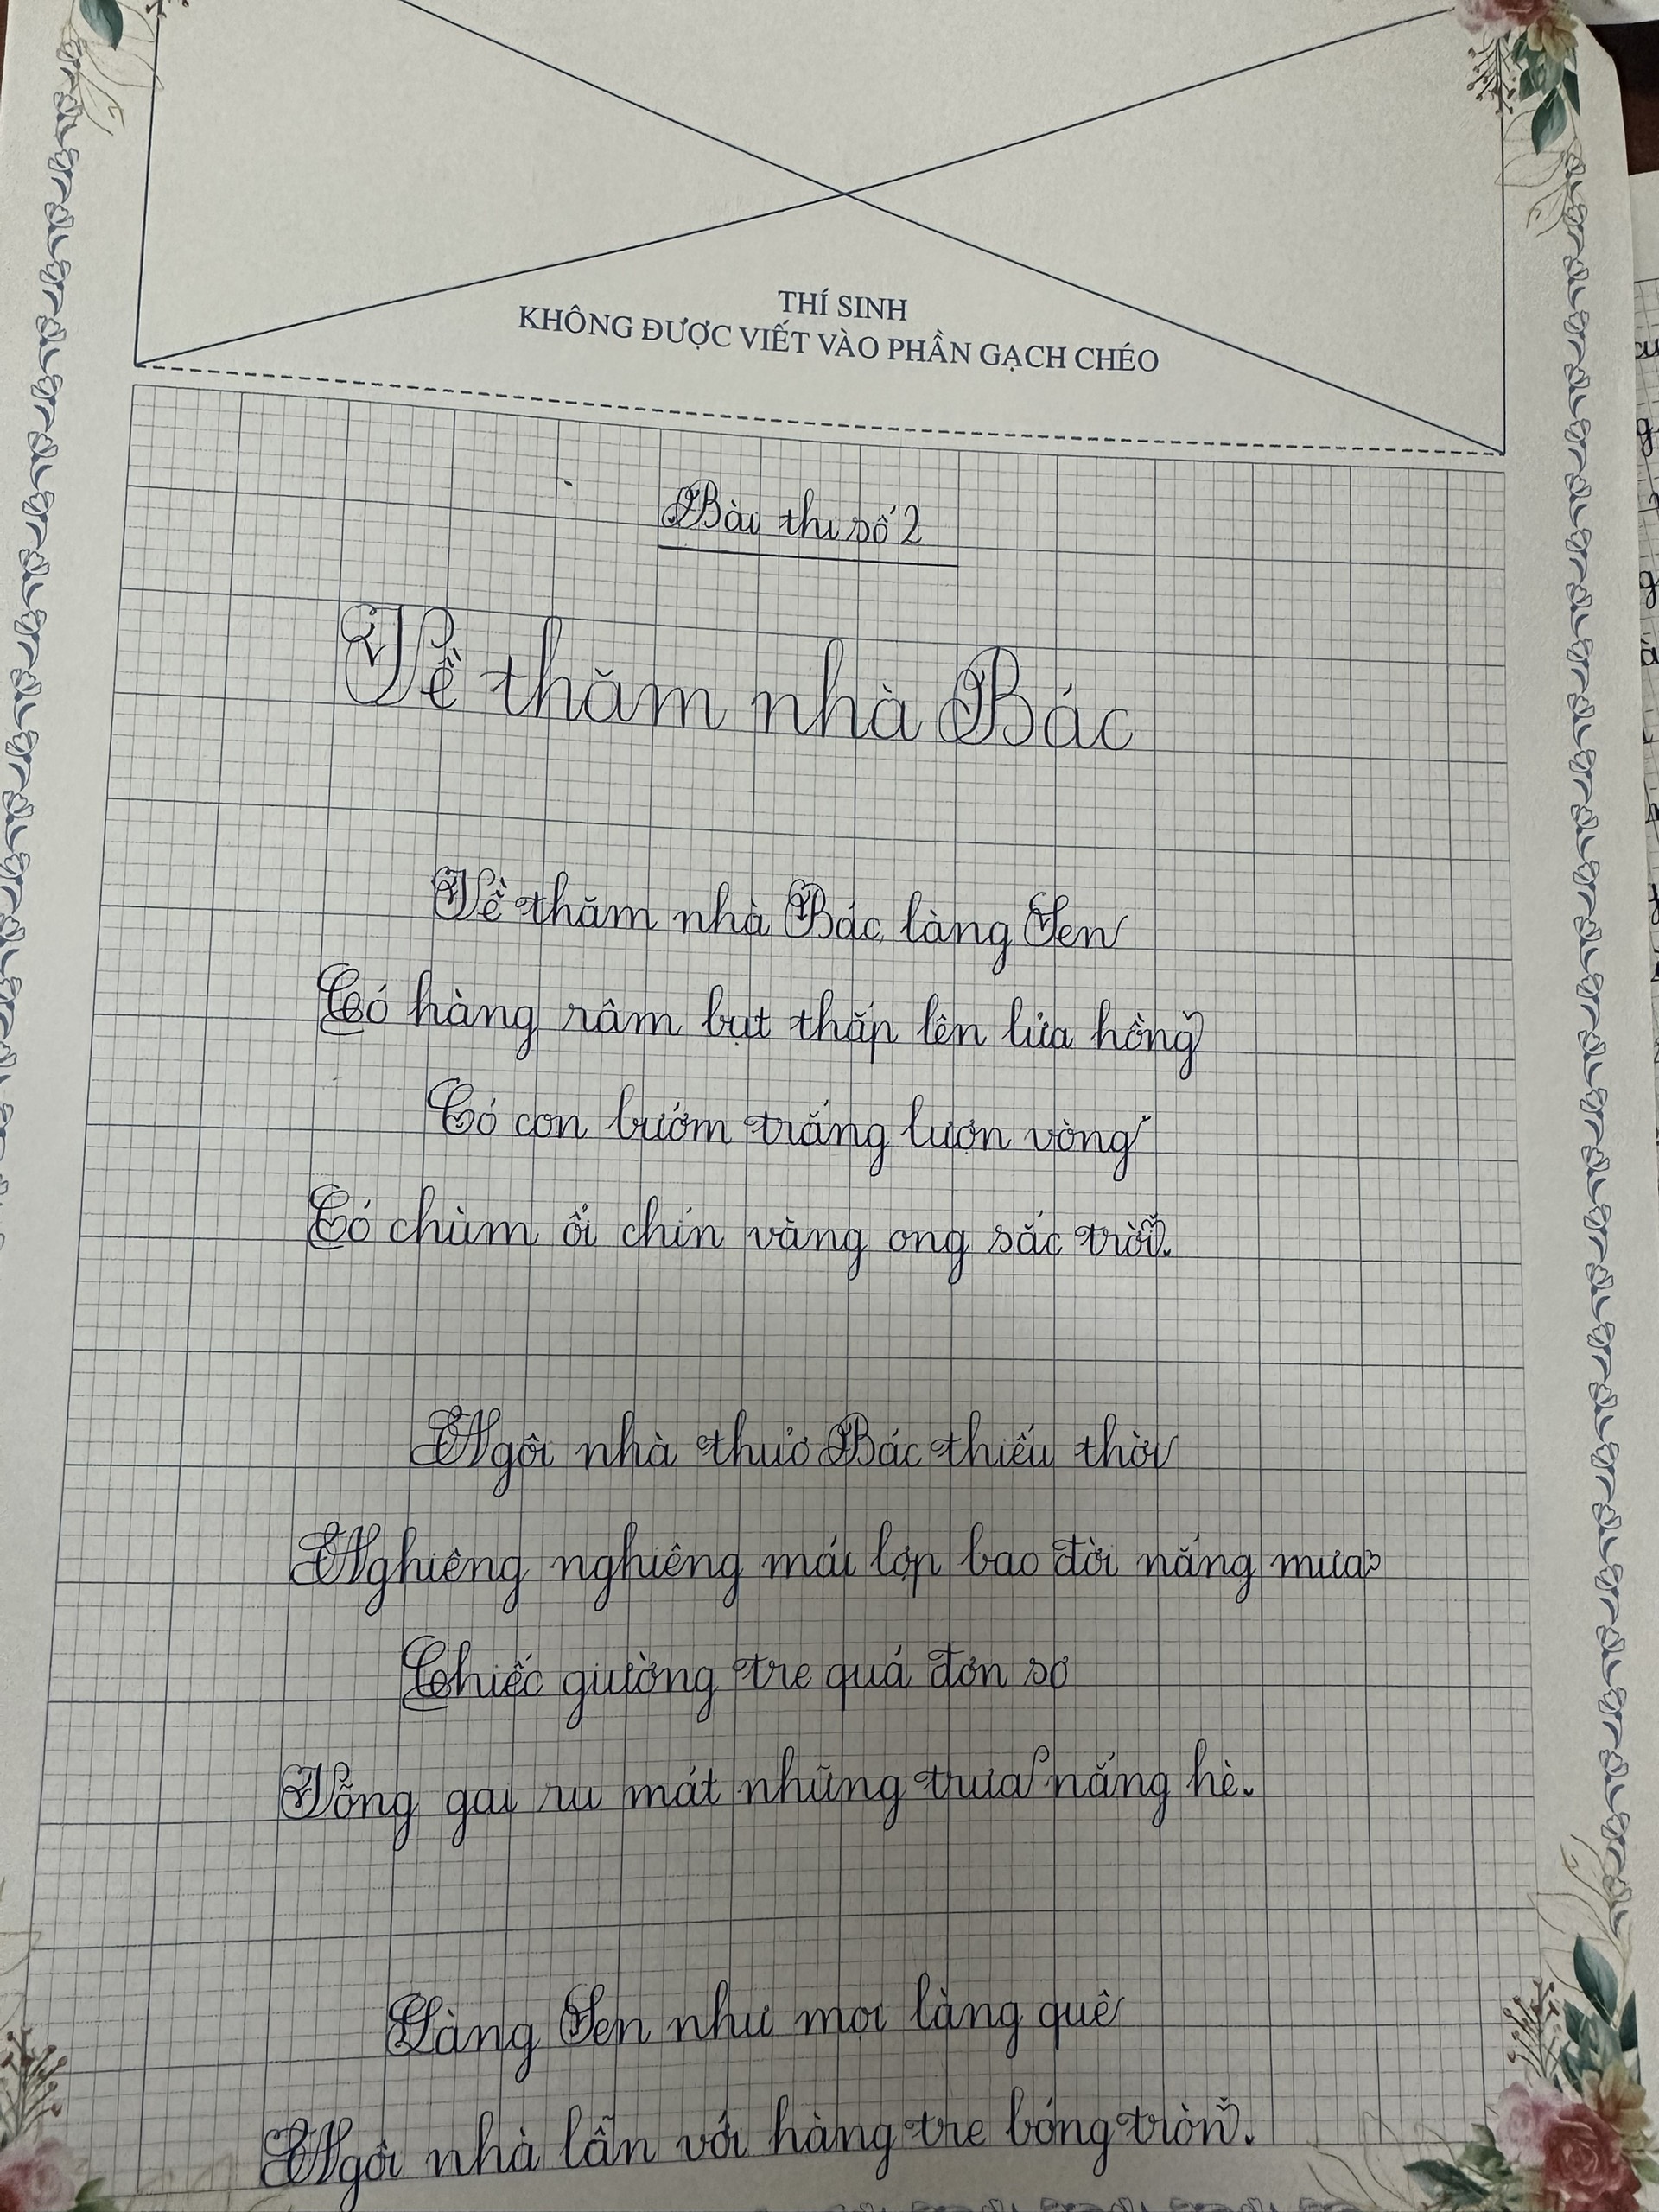 THÍ SINH
KHÔNG ĐƯỢC VIẾT VÀO PHẦN GẠCH CHÉO
Bài thi số 2
Về thăm nhà Bác
Về thăm nhà Bác, làng Sen
Có hàng râm bụt thắp lên lửa hồng
Có con bướm trắng lượn vòng
Có chùm ổi chín vàng ong sắc trời.
Ngôi nhà thuở Bác thiếu thời
Nghiêng nghiêng mái lợp bao đời nắng mưa
Chiếc giường tre quá đơn sơ
Võng gai ru mát những trưa nắng hè.
Làng Sen như mọi làng quê
Ngôi nhà lẫn với hàng tre bóng tròn.